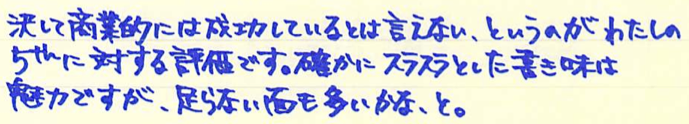 決して商業的には成功しているとは言えない、というのがわたしの
5thに対する評価です。確かにスラスラとした書き味は
魅力ですが、足らない面も多いかな、と。